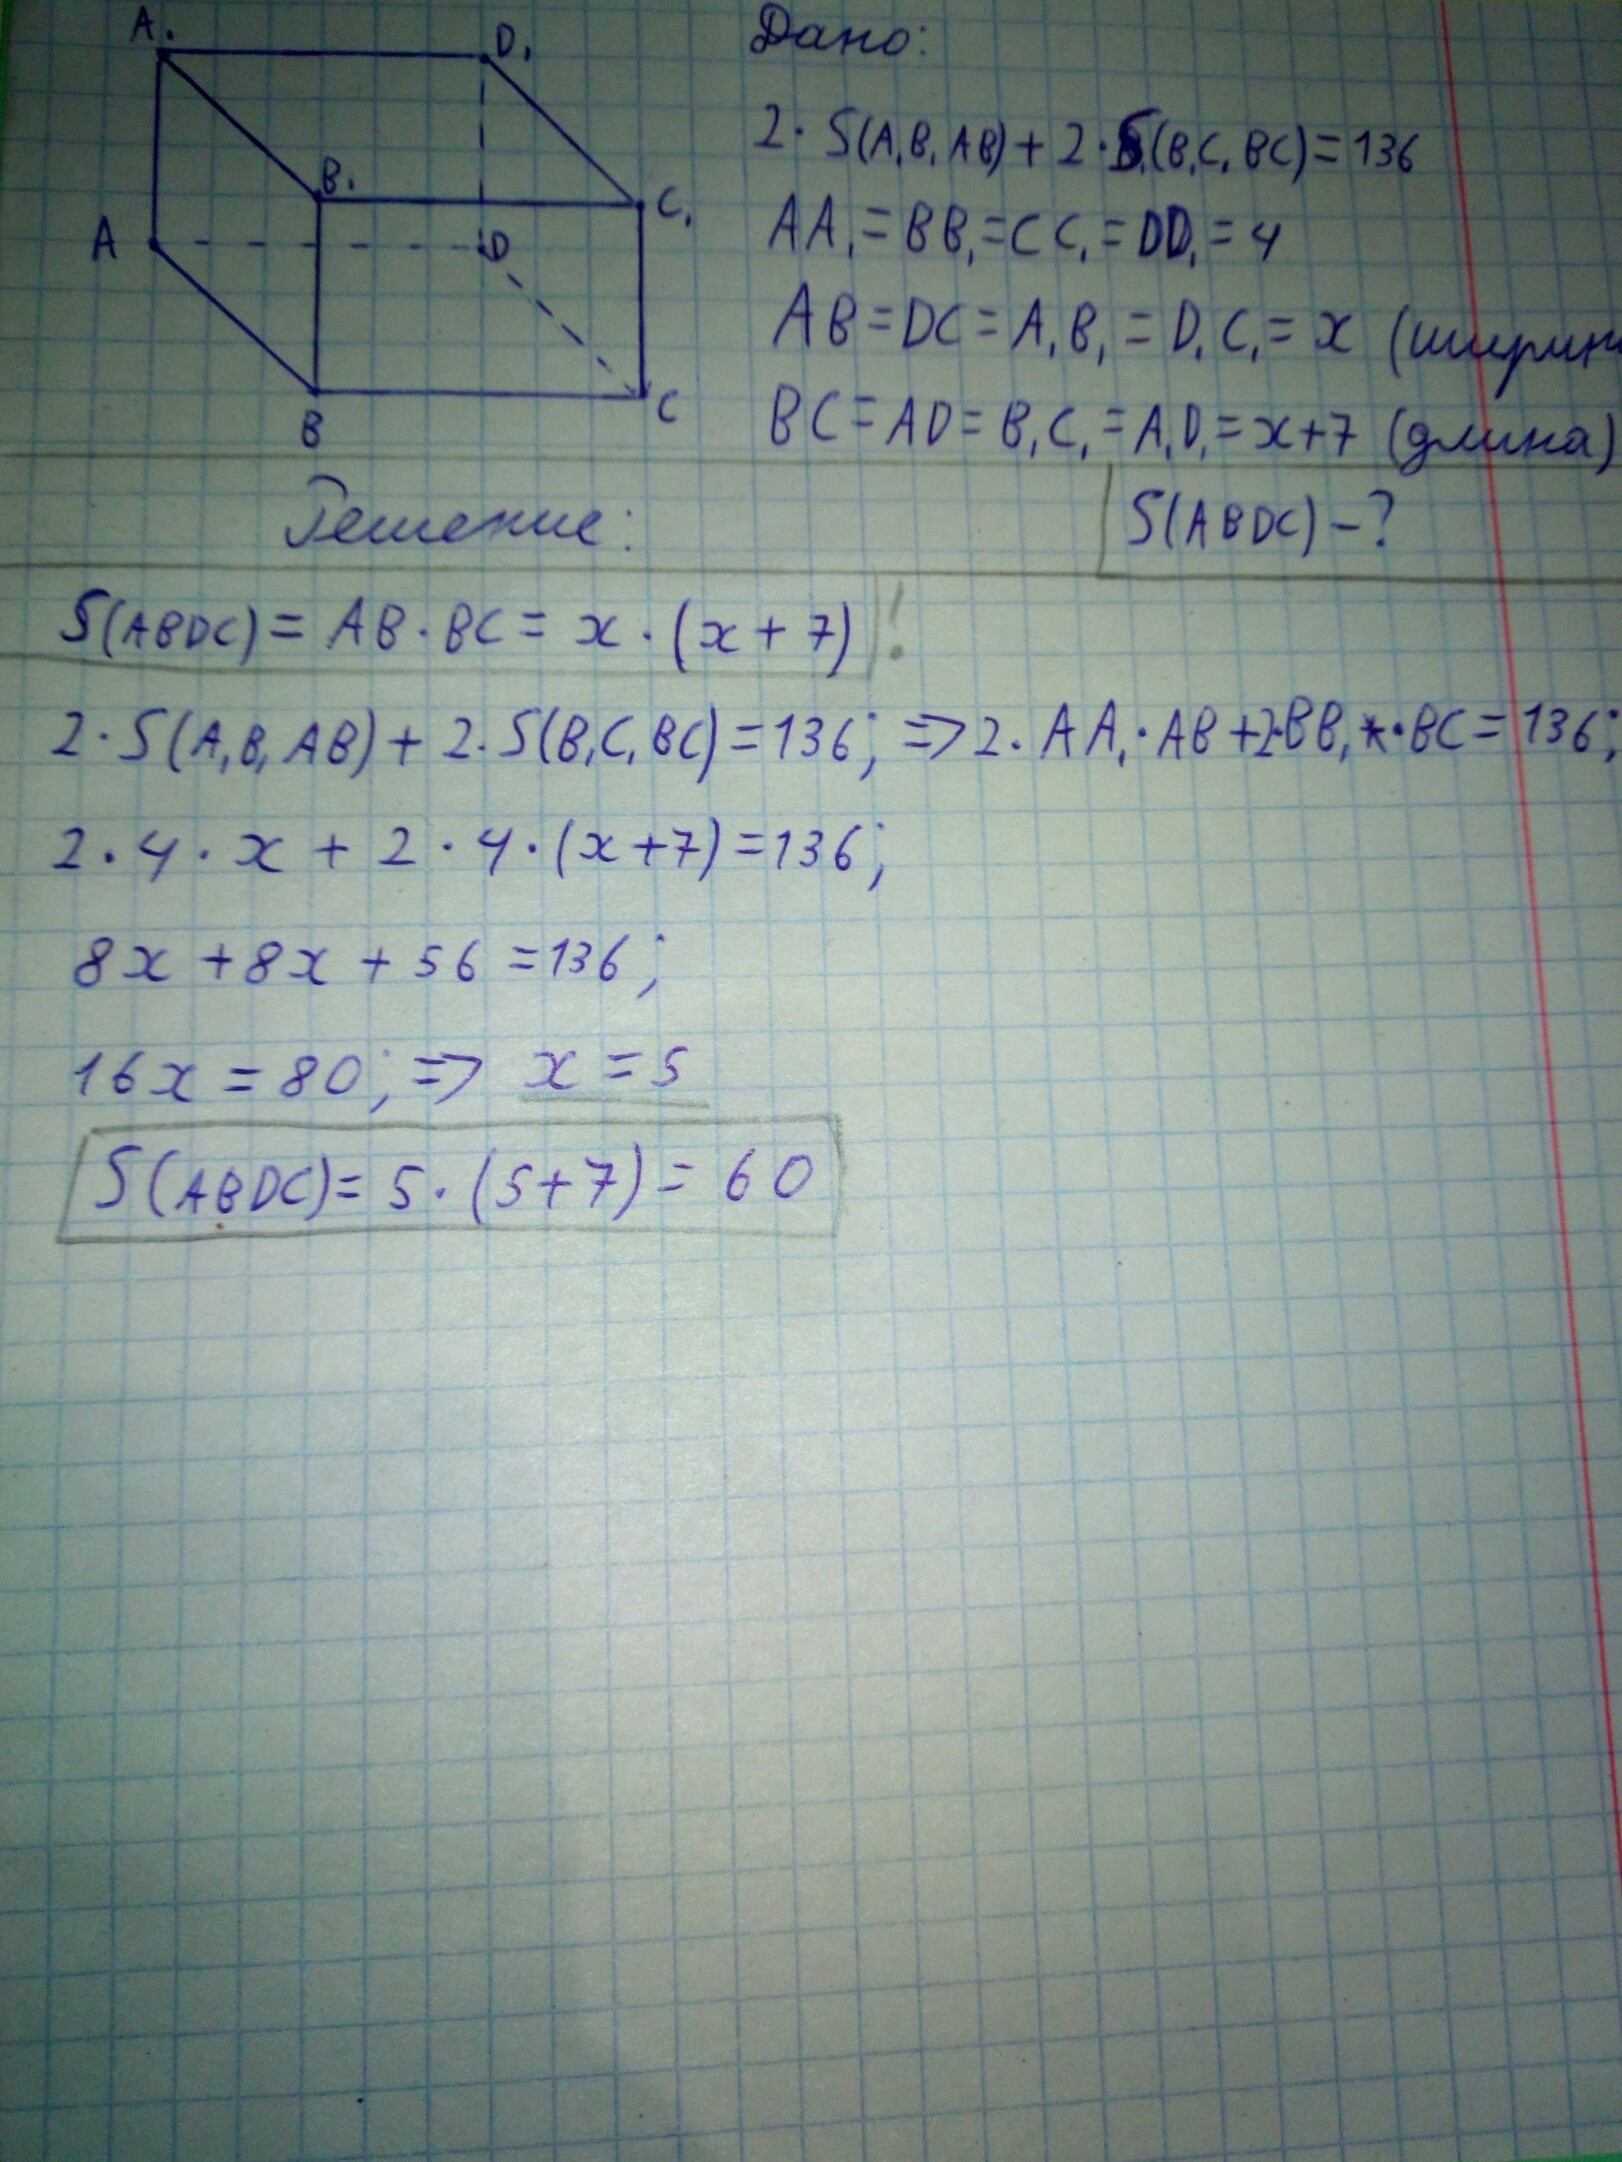 A₁
D₁
B₁
C₁
A
D
B
C
Дано:
2·S(A₁B₁AB)+2·S(B₁C₁BC)=136
AA₁=BB₁=CC₁=DD₁=4
AB=DC=A₁B₁=D₁C₁=x (ширин
BC=AD=B₁C₁=A₁D₁=x+7 (длина)
S(ABDC)-?
Решение:
S(ABDC)=AB·BC=x·(x+7)!
2·S(A₁B₁AB)+2·S(B₁C₁BC)=136; =>2·AA₁·AB+2·BB₁·BC=136;
2·4·x+2·4·(x+7)=136;
8x+8x+56=136;
16x=80; => x=5
S(ABDC)=5·(5+7)=60